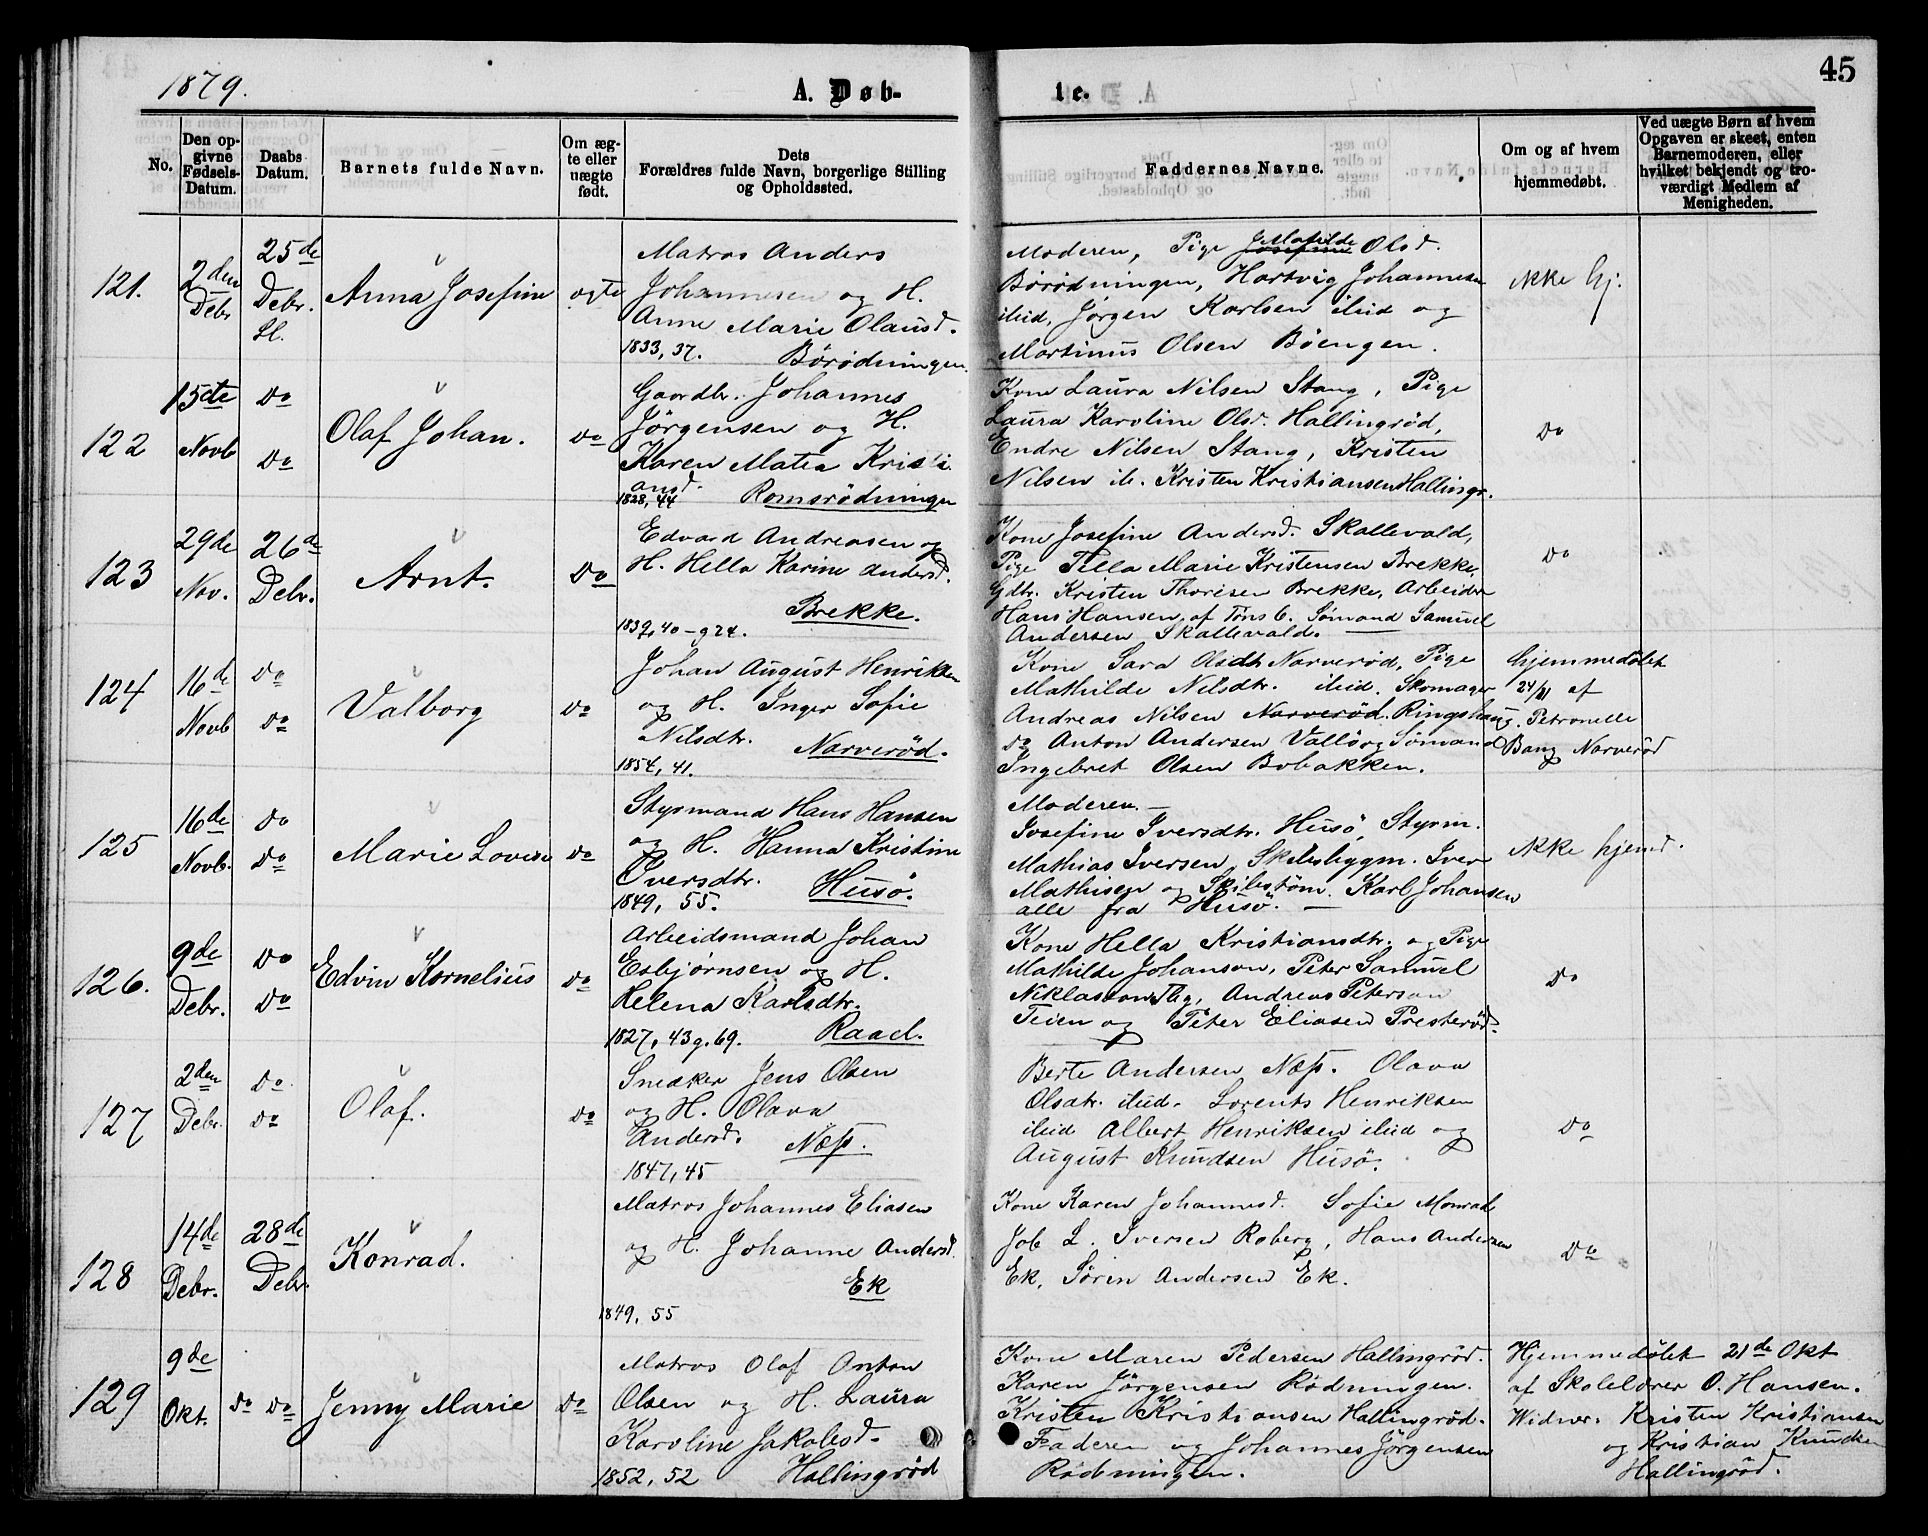 1879.
A. Døb-
te.
45
No.
Den op-
givne
Fødsels-
Datum.
Daabs
Datum.
Barnets fulde Navn.
Om æg-
te eller
uægte
født.
Dets
Forældres fulde Navn, borgerlige Stilling
og Opholdssted.
Faddernes Navne.
Om og af hvem
hjemmedøbt.
Ved uægte Børn af hvem
Opgaven er skeet, enten
Barnemoderen, eller
hvilket bekjendt og tro-
værdigt Medlem af
Menigheden.
121.
2den
Debr
25de
Debr.
Anna Josefine
ægte
Matros Anders
Johannesen og H.
Anne Marie Olausd.
1833, 37. Börödningen
Moderen, Pige Josefine Matilde Olsd.
Börödningen, Hartvig Johannesen
ibid, Jörgen Karlsen ibid og
Martinus Olsen Böengen.
ikke hj.
122
15de
Novb
Do
Do
Olaf Johan.
Do
Gaardbr. Johannes
Jörgensen og H.
Karen Matea Kristi
ansd.
1828, 44 Romsrödningen
Kone Laura Nilsen Stang, Pige
Laura Karoline Olsd. Hallingröd,
Endre Nilsen Stang, Kristen
Nilsen ib. Kristen Kristiansen Hallingr.
Do
123
29de
Nov.
26de
Debr.
Arnt.
Do
Edvard Andreasen og
H. Hella Karine Andersd.
Brekke.
1839, 40 - g 24.
Kone Josefine Andersd. Skallevald,
Pige Tella Marie Kristensen Brekke,
Gdbr. Kristen Thoresen Brekke, Arbeider
Hans Hansen, af Tönsb. Sömand Samuel
Andersen Skallevald.
Do
124
16de
Novb
Do
Do
Valborg
Do
Johan August Henriksen
og H. Inger Sofie
Nilsdtr. Narveröd.
1854, 41.
Kone Sara Olsdtr Narveröd, Pige
Mathilde Nilsdtr. ibid. Skomager
Andreas Nilsen Narveröd. Ringshaug.
Do Anton Andersen Vallö og Sömand
Ingebret Olsen Bobakken.
hjemmedöbt
24/11 af
Petronelle
Bang Narveröd
125
16de
Novb.
Do
Do
Marie Lovise
Do
Styrmand Hans Hansen
og H. Hanna Kristine
Iversdtr. Husö.
1849, 55.
Moderen. —
Josefine Iversdtr. Husö, Styrm.
Mathias Iversen, Skibsbyggm. Iver
Mathisen og Skibstöm. Karl Johansen
alle fra Husö. —
ikke hjemd.
126.
9de
Debr.
Do
Do
Edvin Kornelius
Do
Arbeidsmand Johan
Esbjørnsen og H.
Helena Karlsdtr.
1827, 43 g. 69. Raael.
Kone Hella Kristiansdtr. og Pige
Mathilde Johanson, Peter Samuel
Niklasson Tbg, Andreas Peterson
Teien og Peter Eliasen Presteröd.
Do
127
2den
Debr.
Do
Do
Olaf.
Do
Snedker Jens Olsen
og H. Olava
Andersd. Næs.
1847, 45
Berte Andersen Næs. Olava
Olsdtr. ibid. Lorents Henriksen
ibid Albert Henriksen ibid og
August Knudsen Husö.
Do
128
14de
Debr.
28de
Debr.
Konrad.
Matros Johannes Eliasen
og H. Johanne Andersd.
Ek
1849, 55
Kone Karen Johannesd. Sofie Monrad
Job L. Iversen Roberg, Hans Andersen
Ek, Sören Andersen Ek.
Do
129
9de
Okt.
Do Do
Jenny Marie
Do
Matros Olaf Anton
Olsen og H. Laura
Karoline Jakobsd.
1852, 52 Hallingröd
Kone Maren Pedersen Hallingröd.
Karen Jörgensen Rödningen.
Kristen Kristiansen Hallingröd.
Faderen og Johannes Jörgensen
Rödningen.
Hjemmedöbt 21de Okt
af Skolelærer O. Hansen.
Widner. Kristen Kristiansen
og Kristian Knudsen
Hallingröd.